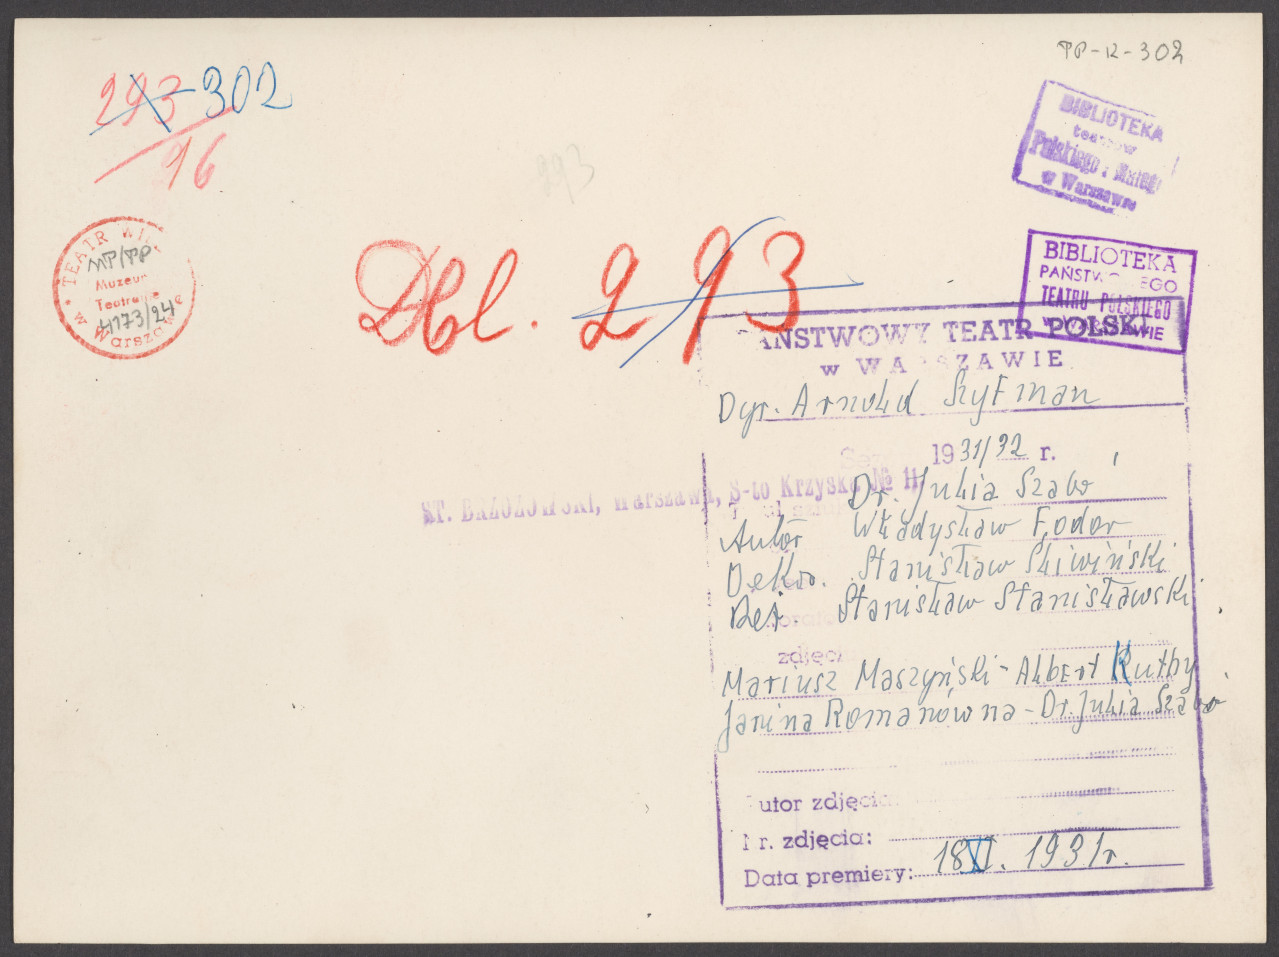 293 302
96
TP-R-302
BIBLIOTEKA
teatrów
Polskiego i Małego
w Warszawie
293
TEATR
MT/TP
Muzeum
Teatralne
4173/24
w Warszawie
Dbl. 293
BIBLIOTEKA
PAŃSTWOWEGO
TEATRU POLSKIEGO
W WARSZAWIE
PAŃSTWOWY TEATR POLSKI
w WARSZAWIE
Dyr. Arnold Szyfman
1931/32 r.
ST. BRZOZOWSKI, Warszawa, S-to Krzyska № 11
Dr. Julia Szabó
Autor Władysław Fodor
Dekor. Stanisław Śliwiński
Reż Stanisław Stanisławski
zdjęcia
Mariusz Maszyński - Albert Kuthy
Janina Romanówna - Dr. Julia Szabó
Autor zdjęcia:
Nr. zdjęcia:
Data premiery: 18 VI. 1931 r.